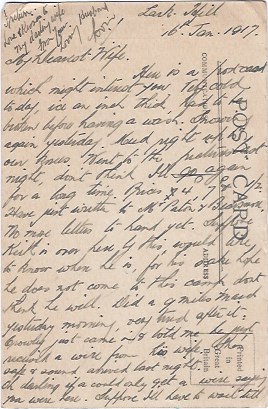 Love & Kisses to
my darling wife
from your
loving Husband
Lark Hill
16th Jan. 1917.
My Dearest Wife.
Here is a postcard
which might interest you. Very cold
to-day, ice an inch thick, had to be
broken before having a wash. Snowed
again yesterday. Mud right up to
our knees. Went to the pictures last
night, don't think I'll go again
for a long time. Prices
Have just written to Mr Paton &
No more letters to hand yet. Say
Keith is over here by this, would like
to know when he is, for his sake hope
he does not come to this camp, don't
think he will. Did a 9 mile march
yesterday morning, very tired after it.
just came in & told me he just
received a wire from his wife. She's
safe & sound, arrived last night.
Oh darling if I could only get a wire saying
you were here. Suppose I'll have to wait till
POST CARD
ADDRESS
Printed
in
Great
Britain